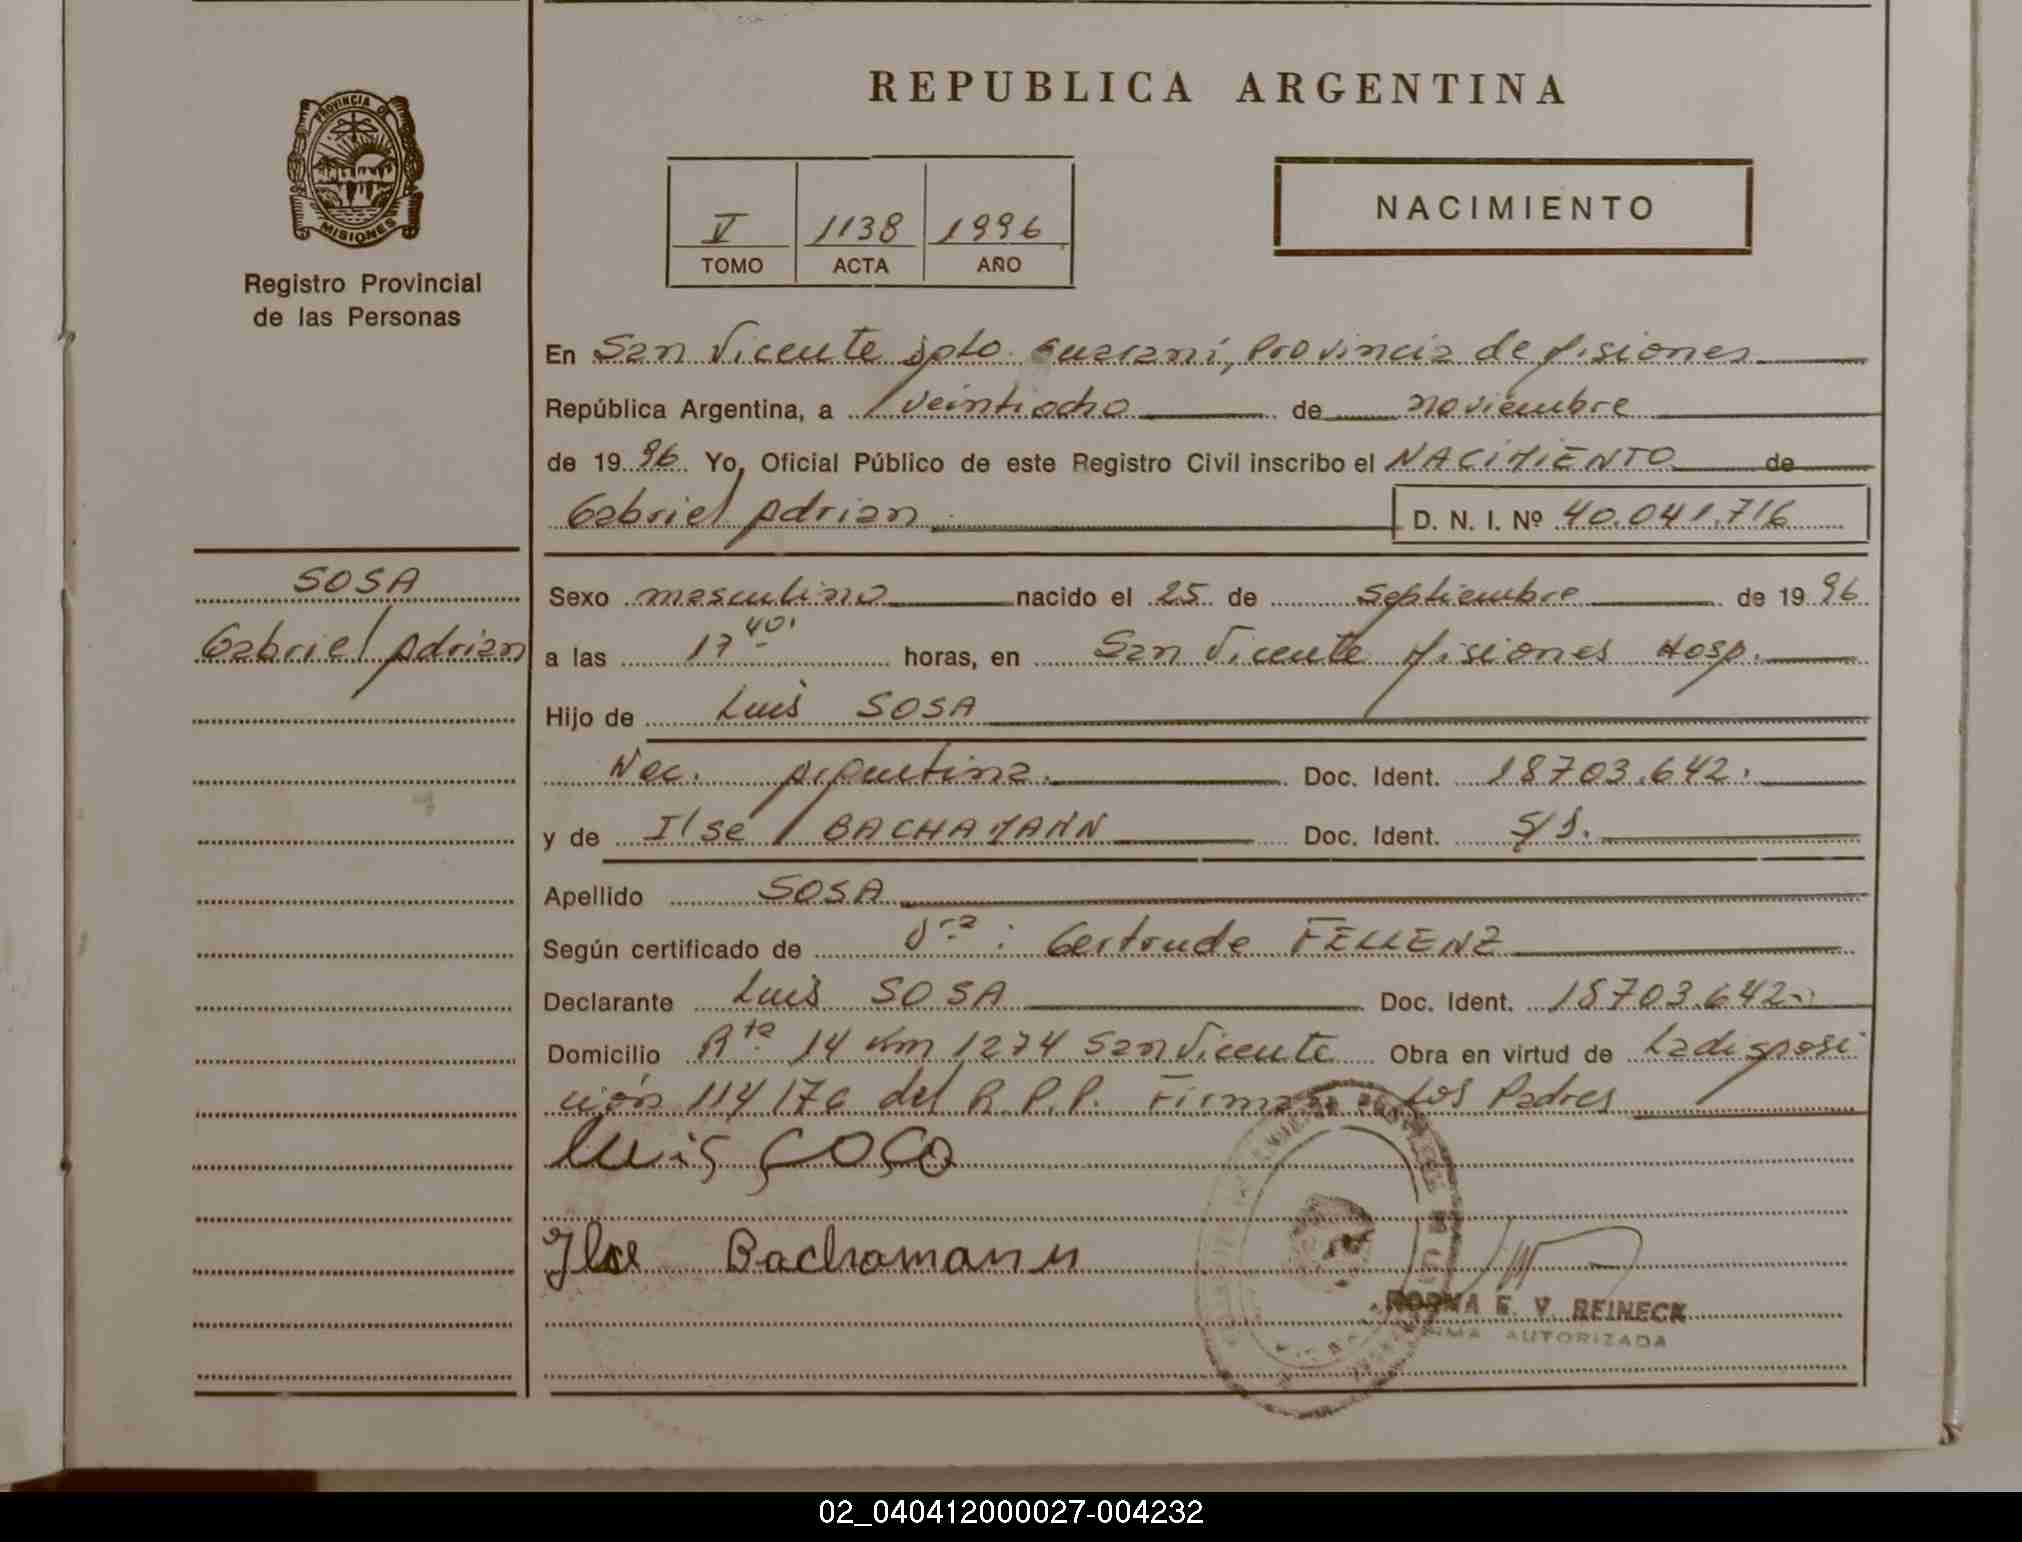 REPUBLICA ARGENTINA
PROVINCIA DE
MISIONES
Registro Provincial
de las Personas
V 1138 1996
TOMO ACTA AÑO
NACIMIENTO
En San Vicente Dpto. Guaraní, Provincia de Misiones
República Argentina, a veintiocho de noviembre
de 1996 Yo, Oficial Público de este Registro Civil inscribo el NACIMIENTO de
Gabriel Adrian D. N. I. Nº 40.041.716
SOSA
Gabriel Adrian
Sexo masculino nacido el 25 de Septiembre de 1996
a las 17 40' horas, en San Vicente Misiones Hosp.
Hijo de Luis SOSA
Nac. Argentina. Doc. Ident. 18703.642.
y de Ilse BACHAMANN Doc. Ident. S/D.
Apellido SOSA
Según certificado de Dra: Gertrude FELLENZ
Declarante Luis SOSA Doc. Ident. 18703.642.
Domicilio Rta 14 Km 1274 San Vicente Obra en virtud de La disposi
ción 114/76 del R.P.P. Firman Los Padres
Luis SOSA
Ilse Bachamann
NORMA E. V. REINECK
FIRMA AUTORIZADA
02_040412000027-004232